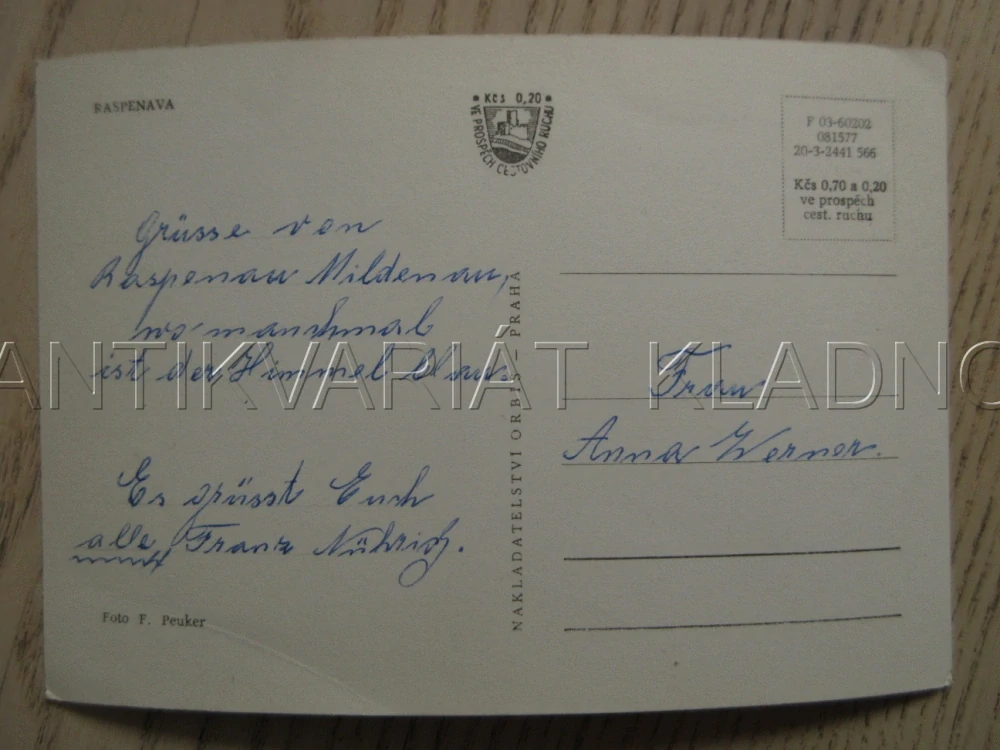 RASPENAVA
* Kčs 0,20 *
VE PROSPĚCH CESTOVNÍHO RUCHU
F 03-60202
081577
20-3-2441 566
Kčs 0,70 a 0,20
ve prospěch
cest. ruchu
Grüsse von
Raspenau Mildenau,
wo manchmal
ist der Himmel blau.
Es grüsst Euch
alle Franz
Foto F. Peuker
NAKLADATELSTVÍ ORBIS – PRAHA
Frau
Anna Werner.
ANTIKVARIÁT KLADNO